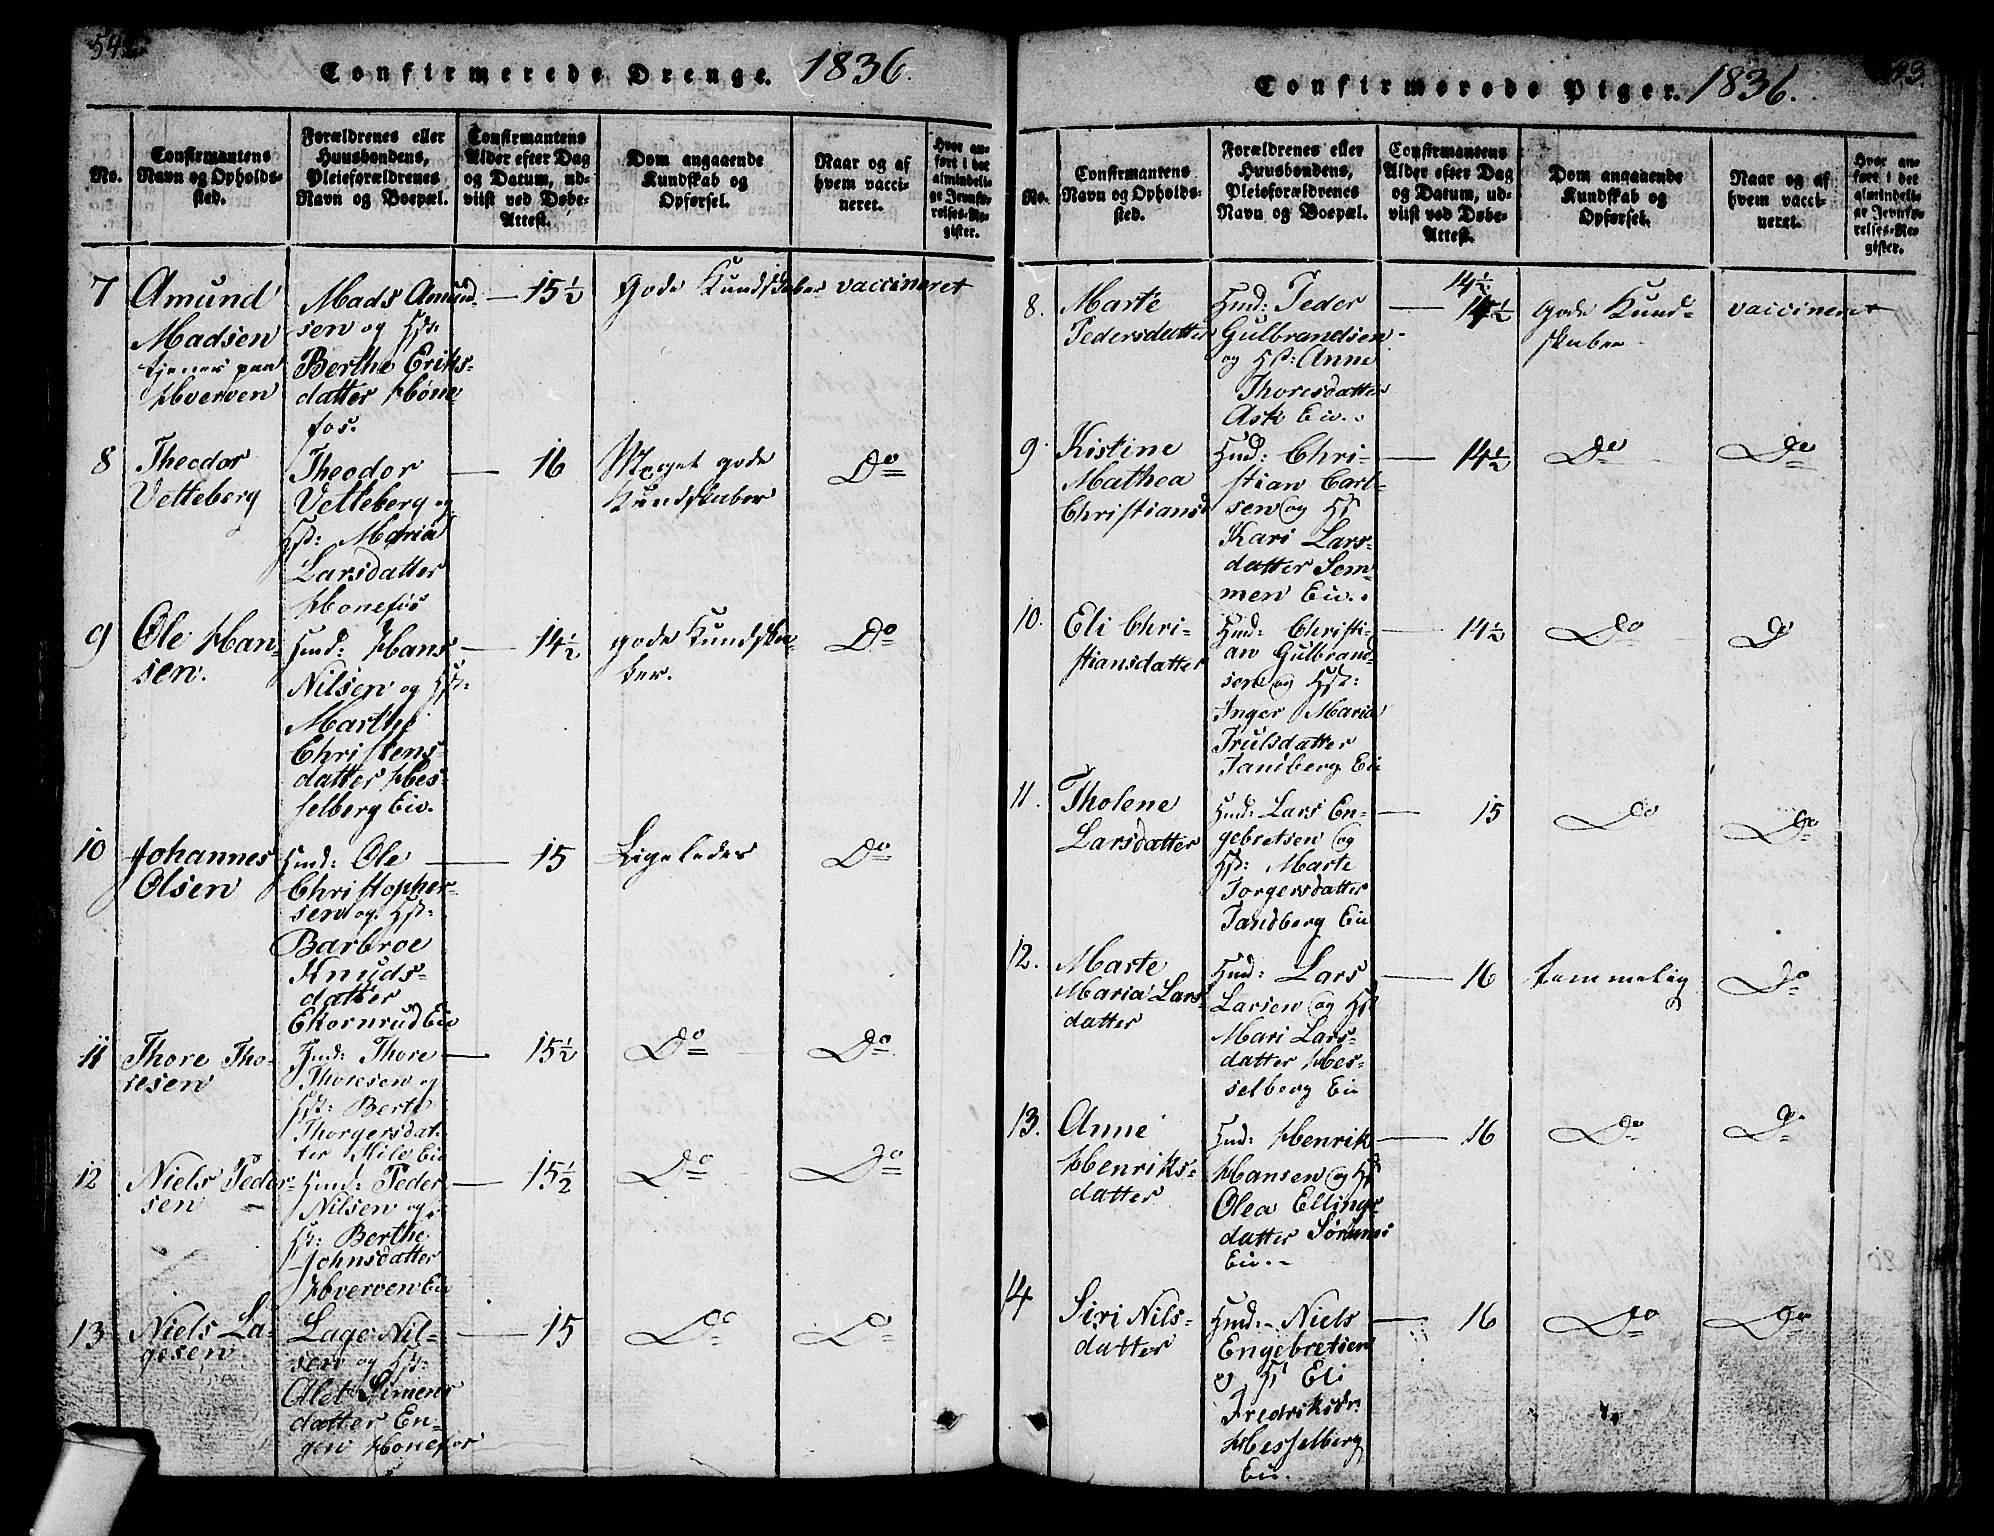 54
Confirmerede Drenge. 1836.
No.
Confirmantens
Navn og Opholds-
sted.
Forældrenes eller
Huusbondens,
Pleieforældrenes
Navn og Boepæl.
Confirmantens
Alder efter Dag
og Datum, ud-
viist ved Døbe-
Attest.
Dom angaaende
Kundskab og
Opførsel.
Naar og af
hvem vacci-
neret.
Hvor an-
ført i det
almindeli-
ge Jevnfø-
relses-Re-
gister.
7
Amund
Madsen
tjener paa
Hverven
Mads Amund-
sen og Hst:
Berthe Eriks-
datter Høne-
fos.
15½
gode Kundskaber
vaccineret
8
Theodor
Vetteberg
Theodor
Vetteberg og
Hst: Maria
Larsdatter
Honefos
16
Meget gode
Kundskaber
Do
9
Ole Han-
sen.
Hmd: Hans
Nilsen og Hst:
Marthe
Christens-
datter Hes-
selberg Eie.
14½
gode Kundska-
ber.
Do
10
Johannes
Olsen
Hmd: Ole
Christopher-
sen og Hst:
Barbroe
Knuds-
datter
Ekornrud Eie
15
Ligeledes
Do
11
Thore Tho-
resen
Hmd: Thore
Thoresen og
Hst: Berte
Thorgersdat-
ter Hile Eie
15½
Do
Do
12
Niels Peder-
sen
Hmd: Peder
Nilsen og
Hst: Berthe
Johnsdatter
Hverven Eie
15½
Do
Do
13
Niels La-
gesen
Lage Nil-
sen og Hst:
Alet Simens
datter En-
gen Honefos
15
Do
Do
43
Confirmerede Piger. 1836.
No.
Confirmantens
Navn og Opholds-
sted.
Forældrenes eller
Huusbondens,
Pleieforældrenes
Navn og Boepæl.
Confirmantens
Alder efter Dag
og Datum, ud-
viist ved Døbe-
Attest.
Dom angaaende
Kundskab og
Opførsel.
Naar og af
hvem vacci-
neret.
Hvor an-
ført i det
almindeli-
ge Jevnfø-
relses-Re-
gister.
8.
Marte
Pedersdatter
Hmd: Peder
Gulbrandsen
og Hst: Anne
Thoresdatter
Ask Eie.
14½
14½
gode Kund-
skaber
vaccineret
9.
Kistine
Mathea
Christiansd
Hmd: Chri-
stian Carl-
sen og Hst
Kari Lars-
datter Sem-
men Eie.
14½
Do
Do
10.
Eli Chri-
stiansdatter
Hmd: Christi-
an Gulbrand-
sen og Hst:
Inger Maria
Trulsdatter
Tandberg Eie
14½
Do
Do
11.
Tholene
Larsdatter
Hmd: Lars En-
gebretsen og
Hst: Marte
Torgersdatter
Tandberg Eie
15
Do
Do
12.
Marte
Maria Lars-
datter
Hmd: Lars
Larsen og Hst
Mari Lars-
datter Hes-
selberg Eie
16
temmelig
Do
13.
Anne
Henriks-
datter
Hmd: Henrik
Hansen og Hst
Olea Ellings-
datter Sørum
Eie.
16
Do
Do
14
Siri Nils-
datter
Hmd: Niels
Engebretsen
og Hst Eli
Fredriksdr.
Hesselberg
Eie.
16
Do
Do